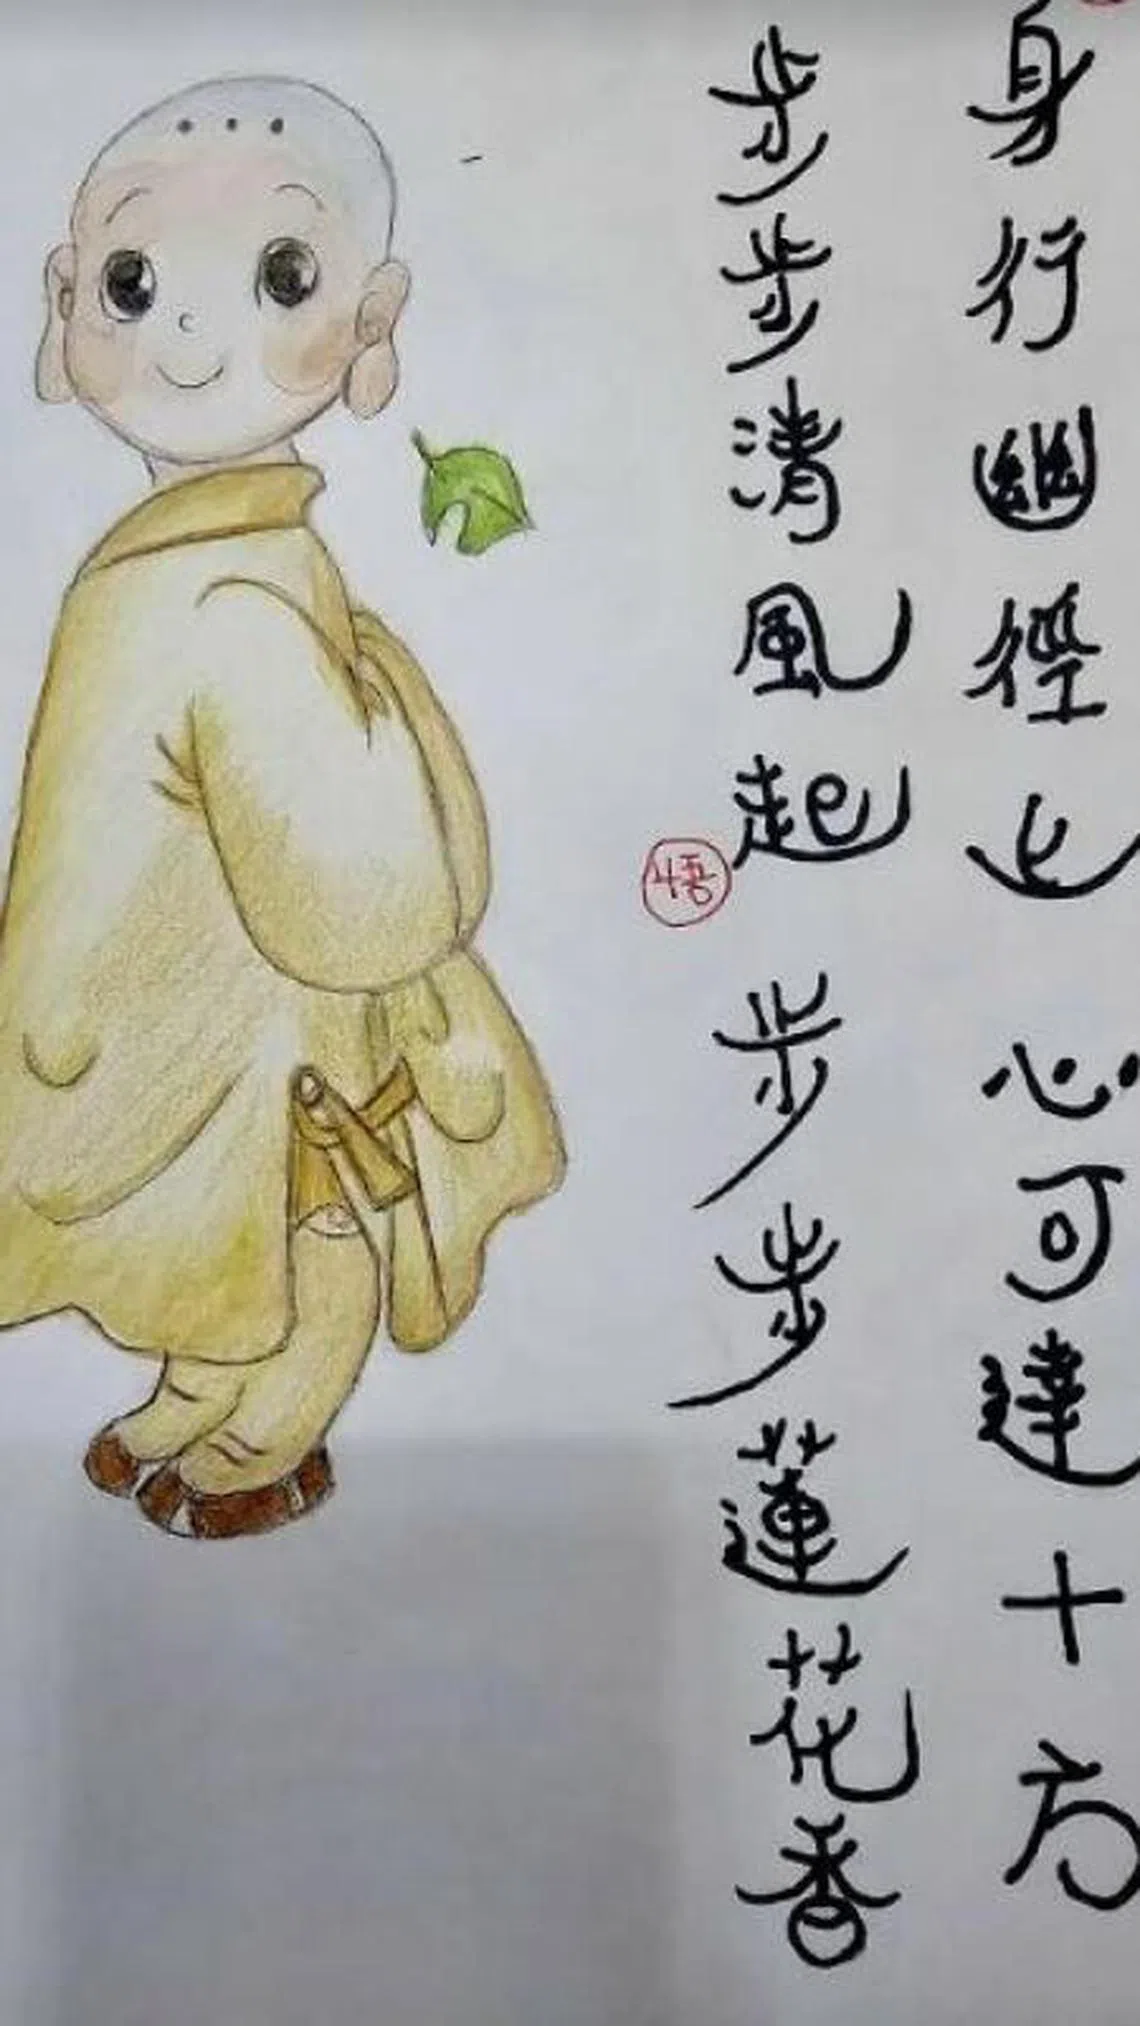 身行幽徑上 心可達十方
步步清風起 步步蓮花香
悟